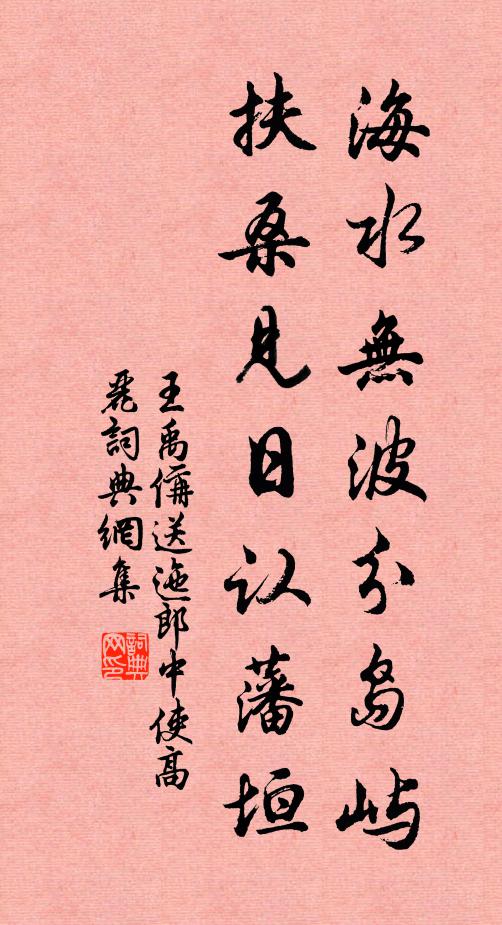 海水無波分島屿
扶桑見日认藩垣
王禹偁送迤郎中使高
麗詞典網集
詞典網印